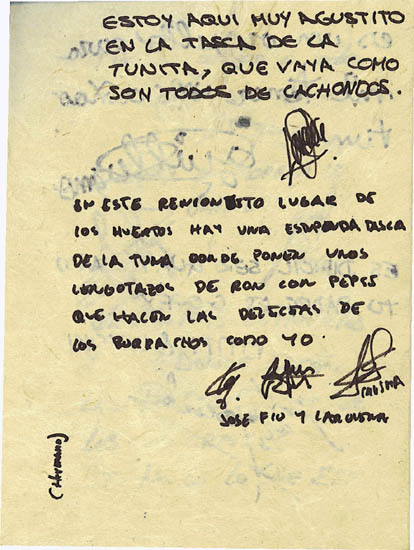 ESTOY AQUI MUY AGUSTITO
EN LA TASCA DE LA
TUNITA, QUE VAYA COMO
SON TODOS DE CACHONDOS.
EN ESTE LUGAR DE
LOS HUERTOS HAY UNA ESTUPENDA TASCA
DE LA TUNA DONDE PONEN UNOS
LINGOTAZOS DE RON CON PEPSI
QUE HACEN LAS DELICIAS DE
LOS BORRACHOS COMO YO.
JOSE FIU Y